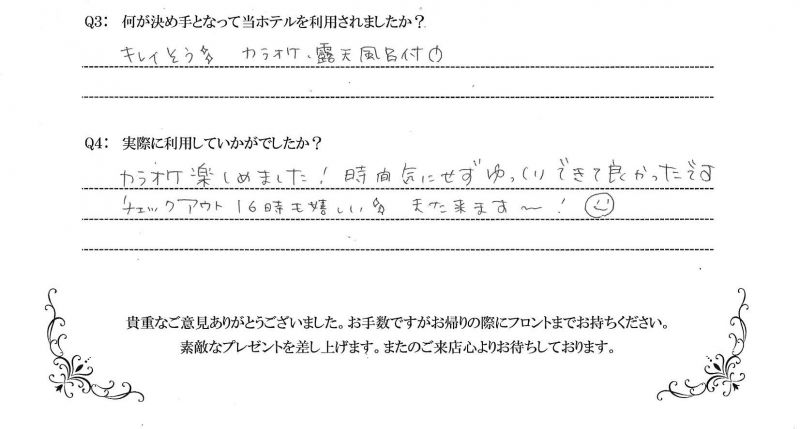 Q3： 何が決め手となって当ホテルを利用されましたか？
キレイそう カラオケ、露天風呂付
Q4： 実際に利用していかがでしたか？
カラオケ楽しめました！時間気にせずゆっくりできて良かったです
チェックアウト16時も嬉しい また来ます〜！
貴重なご意見ありがとうございました。お手数ですがお帰りの際にフロントまでお持ちください。
素敵なプレゼントを差し上げます。またのご来店心よりお待ちしております。